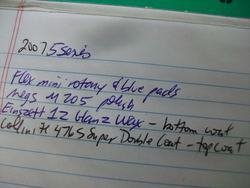 2007 5 Series
Flex mini rotary & blue pads
Megs M205 polish
Einszett 1Z Glanz Wax - bottom coat
Collinite 476S Super Double Coat - top coat